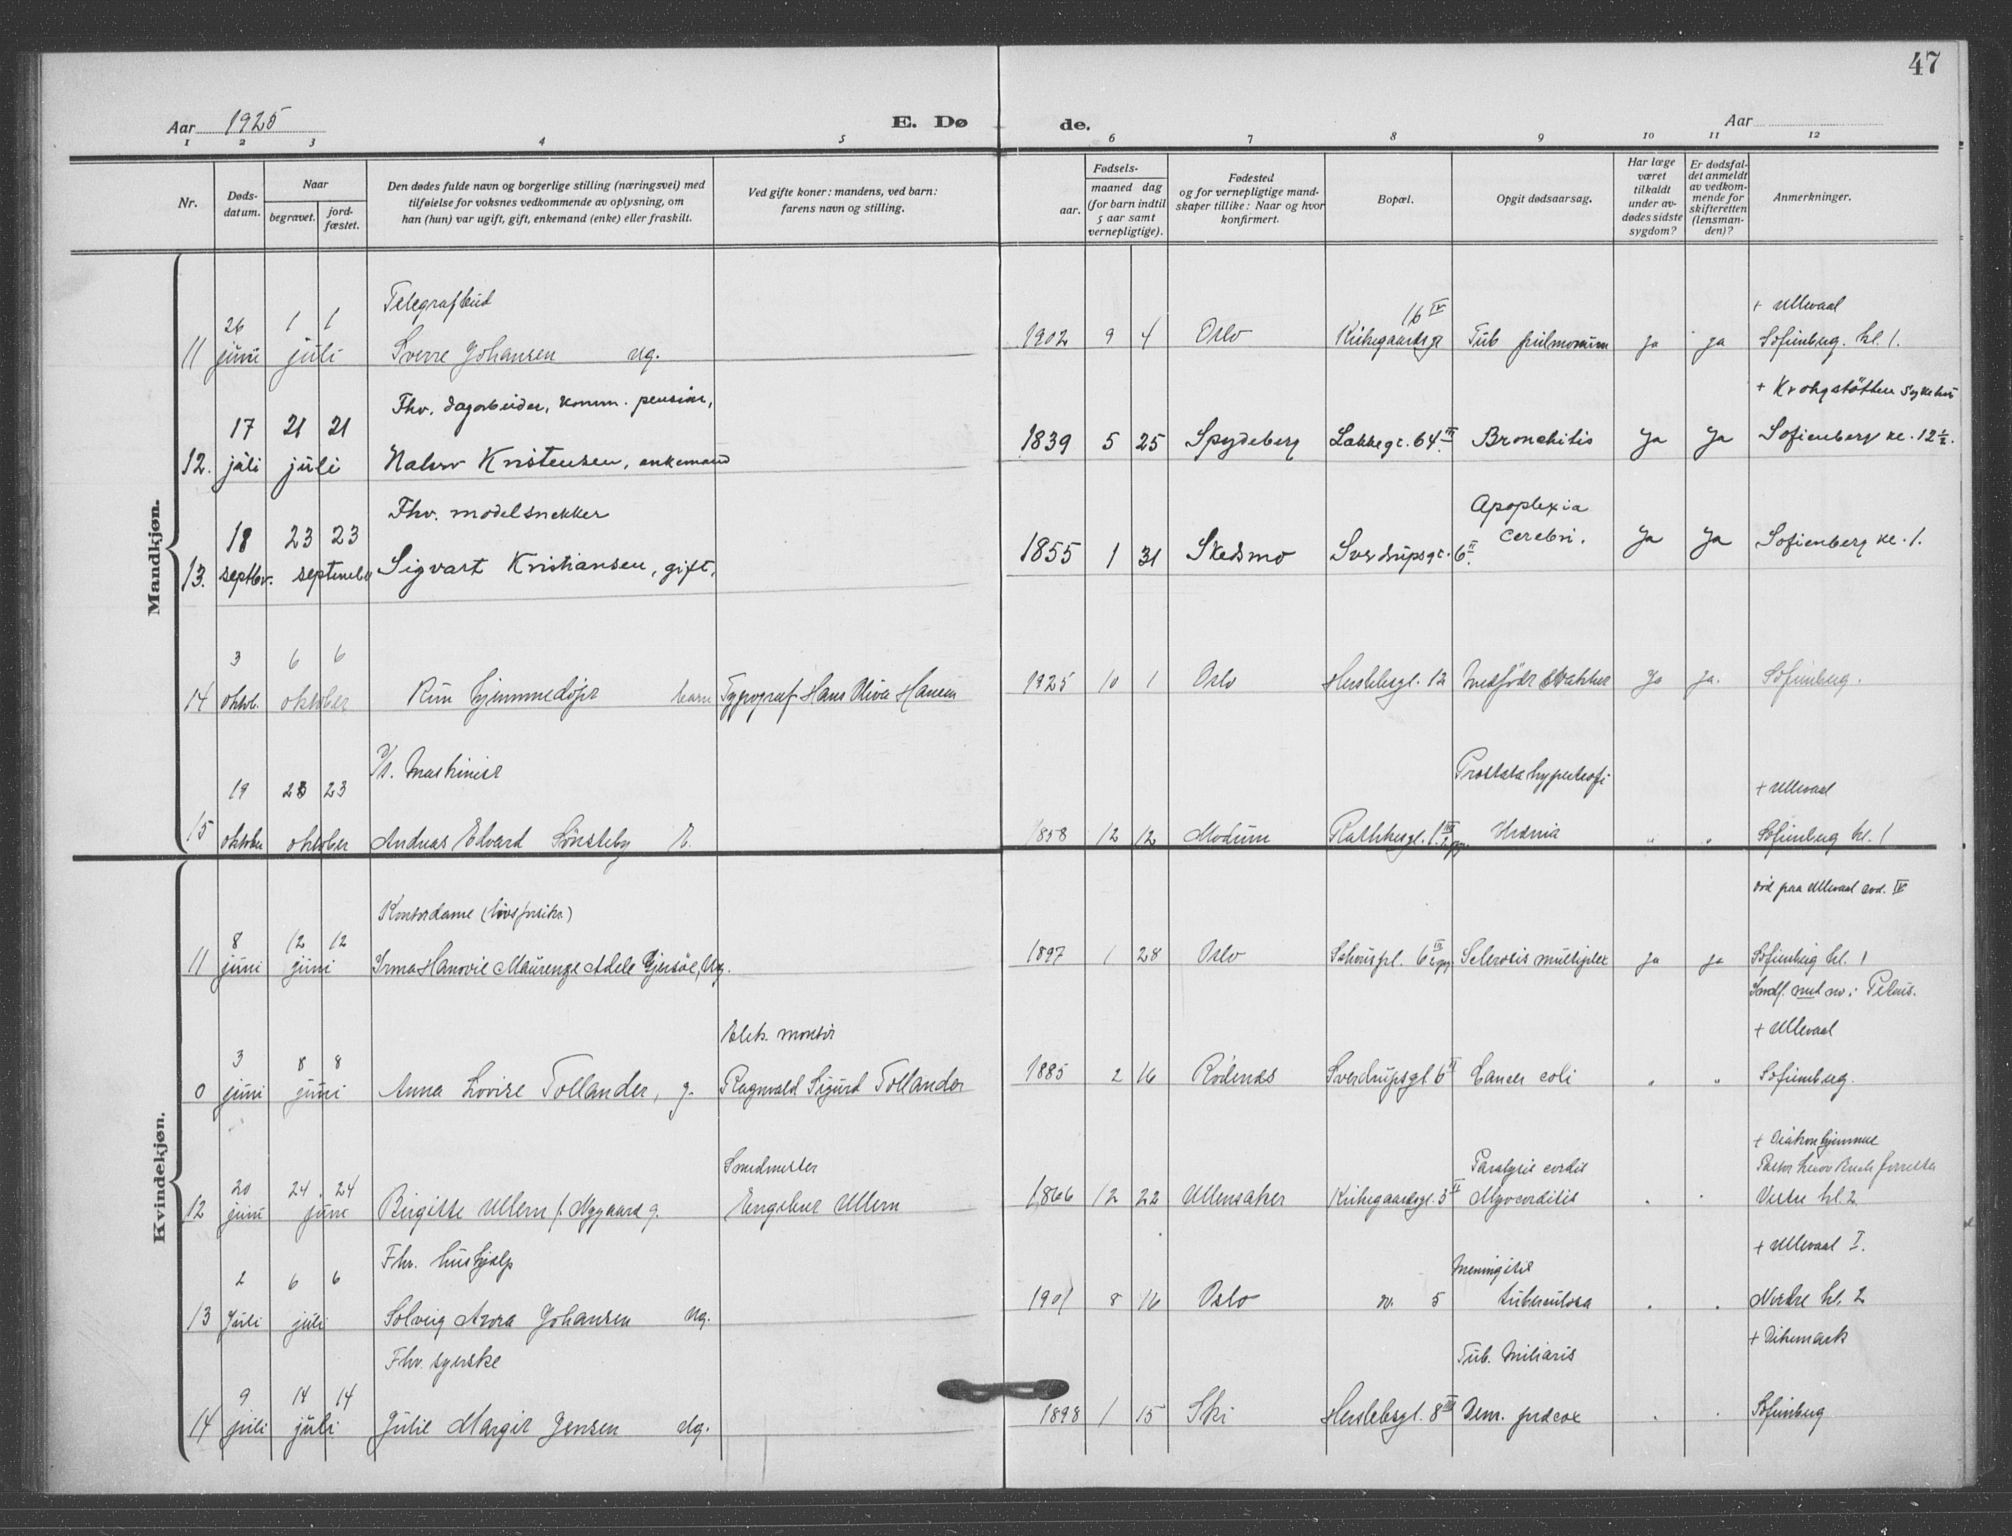 47
Aar 1925
E. Dø de.
Aar
1 2 3 4 5 6 7 8 9 10 11 12
Nr.
Døds-
datum.
Naar
begravet.
jord-
fæstet.
Den dødes fulde navn og borgerlige stilling (næringsvei) med
tilføielse for voksnes vedkommende av oplysning, om
han (hun) var ugift, gift, enkemand (enke) eller fraskilt.
Ved gifte koner: mandens, ved barn:
farens navn og stilling.
Fødsels-
aar.
maaned dag
(for barn indtil
5 aar samt
vernepligtige).
Fødested
og for vernepligtige mand-
skaper tillike: Naar og hvor
konfirmert.
Bopæl.
Opgit dødsaarsag.
Har læge
været
tilkaldt
under av-
dødes sidste
sygdom?
Er dødsfal-
det anmeldt
av vedkom-
mende for
skifteretten
(lensman-
den)?
Anmerkninger.
Mandkjøn.
Telegrafbud
16 IV
+ Ullevaal
26 1 1
11 juni juli Sverre Johansen ug. 1902 9 4 Oslo Kirkegaardsg Tub pulmonum ja ja Sofienberg. kl. 1.
Fhv. dagarbeider, komm. pension,
+ Krohgstøtten sykehus
17 21 21
12. juli juli Kristensen, enkemand 1839 5 25 Spydeberg Lakkegt. 64 III Bronchitis Ja Ja Sofienberg kl. 12 1/2.
Fhv. modelsnekker
Apoplexia
18 23 23
13. septbr. september Sigvart Kristiansen, gift, 1855 1 31 Skedsmo Sverdrupsgt. 6 II cerebri. Ja Ja Sofienberg kl. 1.
3 6 6
14 oktbr. oktober hjemmedøpt barn Typograf Hans Hansen 1925 10 1 Oslo Herslebsgt. 12 Medfødt svakhet Ja ja. Sofienberg.
Maskinist
Prostatahypertrofi
+ Ullevaal
19 23 23
15 oktober oktober Andreas Edvard Sønsteby E. 1858 12 12 Modum Rathkesgt. 1 III Hernia " " Sofienberg kl. 1
Kvindekjøn.
Kontordame (livsforsikr.)
død paa Ullevaal avd. IV
8 12 12
11 juni juni Irma Adele Ug. 1897 1 28 Oslo Schouspl. 6 III Sclerosis multiplex ja ja Sofienberg kl. 1
Petrus.
Elek. montør
+ Ullevaal
3 8 8
0 juni juni Anna Lovise Tollander, g. Ragnvald Sigurd Tollander 1885 2 16 Rødenæs Sverdrupsgt 6 II Cancer coli " " Sofienberg.
Smedmester
Paralysis cordis
+ Diakonhjemmet
20 24 24
12 juni juni Birgitte Ullern f. Nygaard g. Engebret Ullern 1866 12 22 Ullensaker Kirkegaardsgt. 3 II Myocarditis " " Vestre kl. 2
Fhv. hushjælp
Meningitis
+ Ullevaal I.
2 6 6
13 Juli juli Solveig Johansen ug. 1901 8 16 Oslo 5 tuberculosa " " Nordre kl. 2
Fhv. syerske
Tub. Miliaris
+ Dikemark
9 14 14
14 juli juli Julie Margit Jensen ug. 1898 1 15 Ski Herslebsgt. 8 III Dem. præcox " " Sofienberg